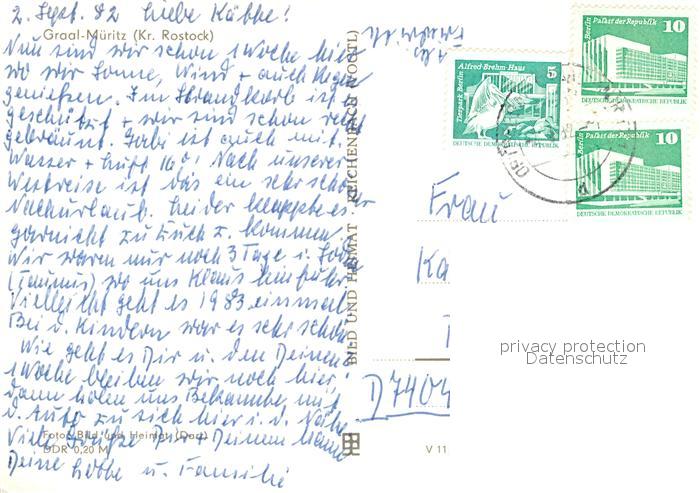 2. Sept. 82 Liebe Käthe!
Graal-Müritz (Kr. Rostock)
Nun sind wir schon 1 Woche hier
wo wir Sonne, Wind + auch Regen
genießen. Im Strandkorb ist es
geschützt + wir sind schon recht
gebräunt. Gabi ist auch mit.
Wasser + Luft 16°! Nach unserer
Westreise ist das ein sehr schöner
Nachurlaub. Leider klappte es
garnicht zu Euch z. kommen
Wir waren nur noch 3 Tage i.
(Taunus) wo uns Klaus hinfuhr
Vielleicht geht es 1983 einmal
Bei d. Kindern war es sehr schön
Wie geht es Dir u. den Deinen
1 Woche bleiben wir noch hier,
dann holen uns Bekannte mit
d. Auto zu sich hier i. d. Nähe
Viele Grüße Dir + Deinem Mann
Foto: Bild und Heimat (Dart)
DDR 0,20 M
Deine u. Familie
BILD UND HEIMAT · REICHENBACH (VOGTL)
V 11
Alfred-Brehm-Haus
Tierpark Berlin
5
DEUTSCHE DEMOKRATISCHE REPUBLIK
Berlin Palast der Republik
10
DEUTSCHE DEMOKRATISCHE REPUBLIK
Berlin Palast der Republik
10
DEUTSCHE DEMOKRATISCHE REPUBLIK
Frau
Ka
D 7404
privacy protection
Datenschutz